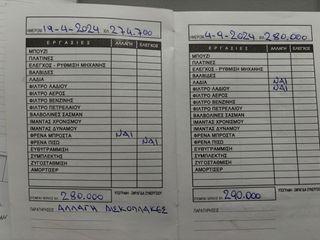 ΗΜΕΡΟΜ. 19-4-2024 ΧΛ. 274.700
ΕΡΓΑΣΙΕΣ ΑΛΛΑΓΗ ΕΛΕΓΧΟΣ
ΜΠΟΥΖΙ
ΠΛΑΤΙΝΕΣ
ΕΛΕΓΧΟΣ - ΡΥΘΜΙΣΗ ΜΗΧΑΝΗΣ
ΒΑΛΒΙΔΕΣ
ΛΑΔΙΑ
ΦΙΛΤΡΟ ΛΑΔΙΟΥ
ΦΙΛΤΡΟ ΑΕΡΟΣ
ΦΙΛΤΡΟ ΒΕΝΖΙΝΗΣ
ΦΙΛΤΡΟ ΠΕΤΡΕΛΑΙΟΥ
ΒΑΛΒΟΛΙΝΕΣ ΣΑΣΜΑΝ
ΙΜΑΝΤΑΣ ΧΡΟΝΙΣΜΟΥ
ΙΜΑΝΤΑΣ ΔΥΝΑΜΟΥ
ΦΡΕΝΑ ΜΠΡΟΣΤΑ ΝΑΙ
ΦΡΕΝΑ ΠΙΣΩ ΝΑΙ
ΕΥΘΥΓΡΑΜΜΙΣΗ
ΣΥΜΠΛΕΚΤΗΣ
ΖΥΓΟΣΤΑΘΜΙΣΗ
ΑΜΟΡΤΙΣΕΡ
ΕΠΟΜΕΝΟ SERVICE ΧΛ. 280.000
ΥΠΟΓΡΑΦΗ - ΣΦΡΑΓΙΔΑ ΣΥΝΕΡΓΕΙΟΥ
ΠΑΡΑΤΗΡΗΣΕΙΣ ΑΛΛΑΓΗ ΔΙΣΚΟΠΛΑΚΕΣ
ΗΜΕΡΟΜ. 4-9-2024 ΧΛ. 280.000
ΕΡΓΑΣΙΕΣ ΑΛΛΑΓΗ ΕΛΕΓΧΟΣ
ΜΠΟΥΖΙ
ΠΛΑΤΙΝΕΣ
ΕΛΕΓΧΟΣ - ΡΥΘΜΙΣΗ ΜΗΧΑΝΗΣ
ΒΑΛΒΙΔΕΣ
ΛΑΔΙΑ ΝΑΙ
ΦΙΛΤΡΟ ΛΑΔΙΟΥ ΝΑΙ
ΦΙΛΤΡΟ ΑΕΡΟΣ
ΦΙΛΤΡΟ ΒΕΝΖΙΝΗΣ
ΦΙΛΤΡΟ ΠΕΤΡΕΛΑΙΟΥ
ΒΑΛΒΟΛΙΝΕΣ ΣΑΣΜΑΝ
ΙΜΑΝΤΑΣ ΧΡΟΝΙΣΜΟΥ
ΙΜΑΝΤΑΣ ΔΥΝΑΜΟΥ
ΦΡΕΝΑ ΜΠΡΟΣΤΑ
ΦΡΕΝΑ ΠΙΣΩ
ΕΥΘΥΓΡΑΜΜΙΣΗ
ΣΥΜΠΛΕΚΤΗΣ
ΖΥΓΟΣΤΑΘΜΙΣΗ
ΑΜΟΡΤΙΣΕΡ
ΕΠΟΜΕΝΟ SERVICE ΧΛ. 290.000
ΥΠΟΓΡΑΦΗ - ΣΦΡΑΓΙΔΑ ΣΥΝΕΡΓΕΙΟΥ
ΠΑΡΑΤΗΡΗΣΕΙΣ